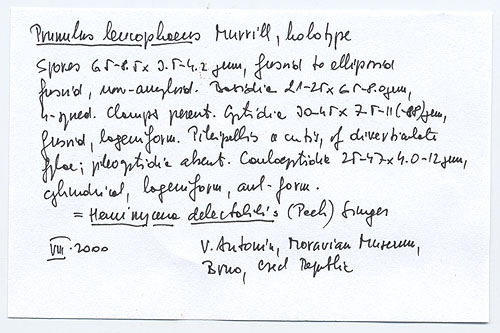 Prunulus leucophaeus Murrill, holotype
Spores 6.5-8.5 x 3.5-4.2 μm, fusoid to ellipsoid
fusoid, non-amyloid. Basidia 21-25 x 6.5-8.0 μm,
4-spored. Clamps present. Cystidia 30-45 x 7.5-11 μm,
fusoid, lageniform. Pileipellis a cutis, of diverticulate
hyphae; pileocystidia absent. Caulocystidia 25-47 x 4.0-12 μm,
cylindrical, lageniform, -form.
= Hemimycena delectabilis (Peck) Singer
VIII. 2000
V. Antonín, Moravian Museum,
Brno, Czech Republic